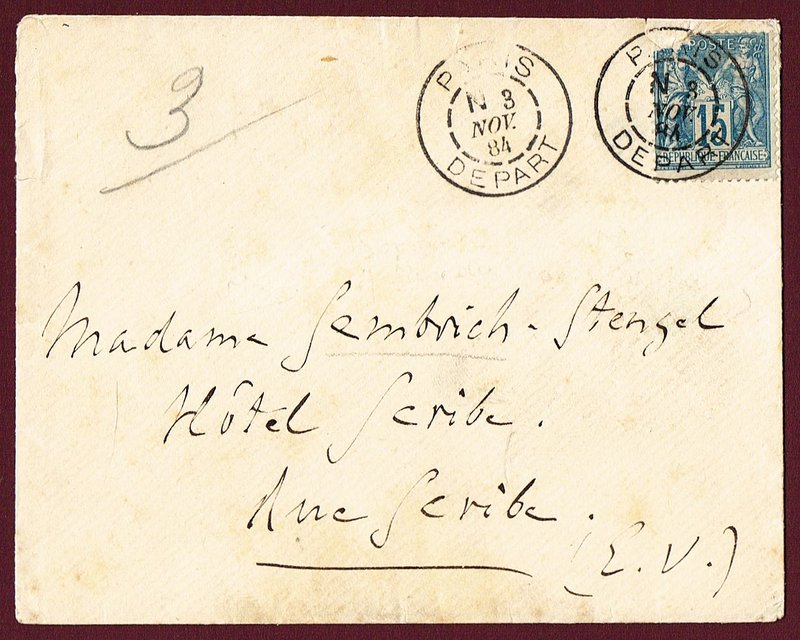 3
PARIS
N 3
NOV.
84
DEPART
PARIS
N 3
NOV.
84
DEPART
POSTE
15
REPUBLIQUE FRANCAISE
Madame Sembrich-Stengel
Hôtel Scribe.
Rue Scribe.
(E.V.)